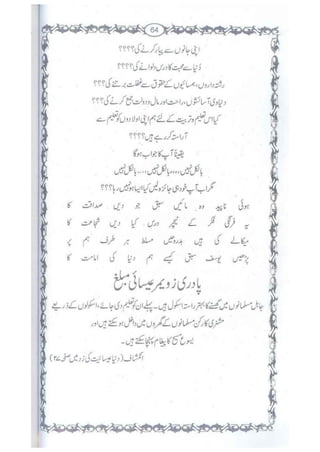 64
اپنی جانوں سے پیار کرنے کی؟؟؟؟
دُنیا سے محبت کا درس دلوانے کی؟؟؟؟
رشتہ داروں، ہمسائیوں کے حقوق سے غفلت برتنے کی؟؟؟؟
دنیاوی آسائشوں، راحت اور مال و دولت جمع کرنے کی؟؟؟؟
کیا اس تعلیم و تربیت کے لئے ہم اپنی اولادوں کو تعلیم سے
آراستہ کر رہے ہیں؟؟؟؟
یقیناً آپ کا جواب ہو گا
بالکل نہیں....بالکل نہیں....بالکل نہیں
مگر اب آپ خود ہی جائزہ لیں کیا ایسا ہو نہیں رہا؟؟؟
ہوئی ناپید وہ مائیں سبق جو دیں صداقت کا
یہ فرنگی فکر کے ٹیچر درس کیا دیں شجاعت کا
میکالے کی ہیں بدروحیں مسلط ہر طرف ہم پر
پڑھیں یوسف سبق کیسے ہم دنیا کی امامت کا
پادری زویمر عیسائی مبلغ
جاہل مسلمانوں میں گھسنے کا بہتر راستہ اسکول ہیں۔ پہلے ان تعلیم دی جائے، اسکولوں کے ذریعے
مشنری کارکن مسلمانوں کے گھروں میں داخل ہو سکتے ہیں اور
یسوع مسیح کا پیغام پہنچا سکتے ہیں۔
انکشاف (دنیا عیسائیت کی زد میں صفحہ ۲۷)